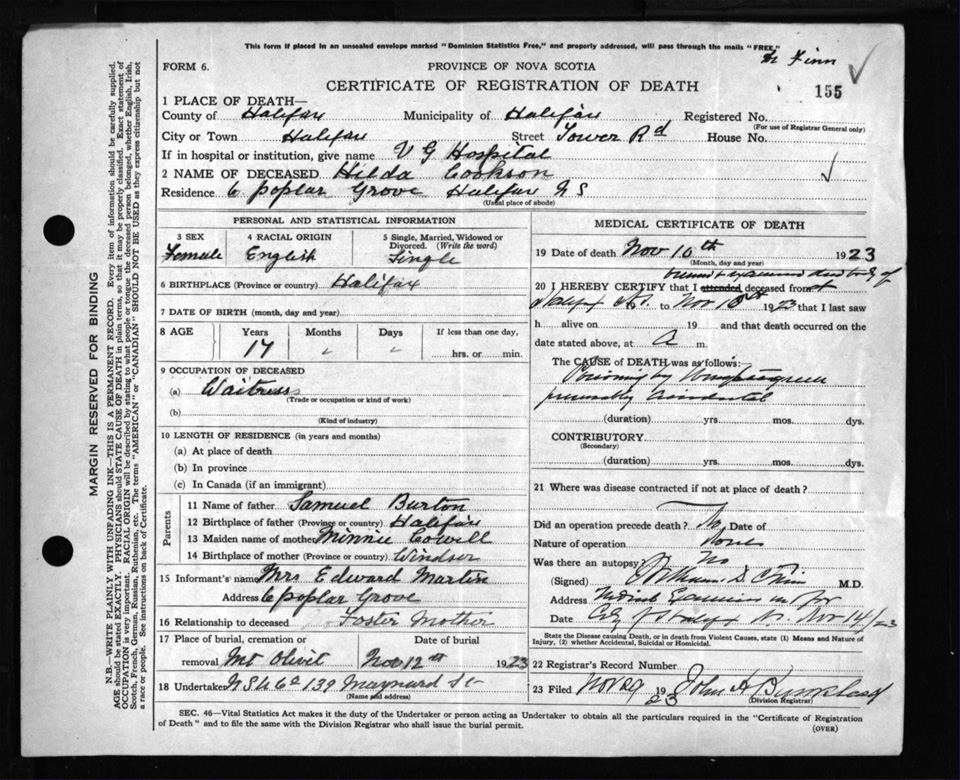 This form if placed in an unsealed envelope marked "Dominion Statistics Free," and properly addressed, will pass through the mails "FREE."
Finn
FORM 6.
PROVINCE OF NOVA SCOTIA
CERTIFICATE OF REGISTRATION OF DEATH
155
1 PLACE OF DEATH—
County of Halifax Municipality of Halifax Registered No.
(For use of Registrar General only)
City or Town Halifax Street Tower Rd House No.
If in hospital or institution, give name V G Hospital
2 NAME OF DECEASED Hilda Cookson
Residence 6 Poplar Grove Halifax N S
(Usual place of abode)
PERSONAL AND STATISTICAL INFORMATION
3 SEX Female
4 RACIAL ORIGIN English
5 Single, Married, Widowed or Divorced. (Write the word) Single
6 BIRTHPLACE (Province or country) Halifax
7 DATE OF BIRTH (month, day and year)
8 AGE Years Months Days If less than one day,
17 hrs. or min.
9 OCCUPATION OF DECEASED
(a) Waitress
(Trade or occupation or kind of work)
(b)
(Kind of industry)
10 LENGTH OF RESIDENCE (in years and months)
(a) At place of death
(b) In province
(c) In Canada (if an immigrant)
Parents
11 Name of father Samuel Burton
12 Birthplace of father (Province or country) Halifax
13 Maiden name of mother Minnie Cowell
14 Birthplace of mother (Province or country) Windsor
15 Informant's name Mrs Edward Martin
Address 6 Poplar Grove
16 Relationship to deceased Foster Mother
17 Place of burial, cremation or Date of burial
removal Mt Olivit Nov 12th 1923
18 Undertaker N S U Co 139 Maynard St
(Name and address)
MEDICAL CERTIFICATE OF DEATH
19 Date of death Nov 10th 1923
(Month, day and year)
viewed & examined dead body of
20 I HEREBY CERTIFY that I attended deceased from at
Halifax to Nov 10th 1923 that I last saw
h alive on 19 and that death occurred on
date stated above, at A m.
The CAUSE of DEATH was as follows:
Poisoning by
presumably accidental
(duration) yrs. mos. dys.
CONTRIBUTORY
(Secondary)
(duration) yrs. mos. dys.
21 Where was disease contracted if not at place of death?
Did an operation precede death? No Date of
Nature of operation None
Was there an autopsy? No
(Signed) M.D.
Address Medical Examiner
Date City of Halifax Nov 14/23
State the Disease causing Death, or in death from Violent Causes, state (1) Means and Nature of Injury, (2) whether Accidental, Suicidal or Homicidal.
22 Registrar's Record Number
23 Filed Nov 29 1923 John A
(Division Registrar)
SEC. 46—Vital Statistics Act makes it the duty of the Undertaker or person acting as Undertaker to obtain all the particulars required in the "Certificate of Registration
of Death" and to file the same with the Division Registrar who shall issue the burial permit.
(OVER)
MARGIN RESERVED FOR BINDING
N.B.—WRITE PLAINLY WITH UNFADING INK—THIS IS A PERMANENT RECORD. Every item of information should be carefully supplied.
AGE should be stated EXACTLY. PHYSICIANS should STATE CAUSE OF DEATH in plain terms, so that it may be properly classified. Exact statement of
OCCUPATION is very important. RACIAL ORIGIN will be described by stating to what people or tongue the deceased person belonged, whether English, Irish,
Scotch, French, German, Russian, Ruthenian, etc. The terms "AMERICAN" or "CANADIAN" SHOULD NOT BE USED as they express citizenship but not
a race or people. See instructions on back of Certificate.